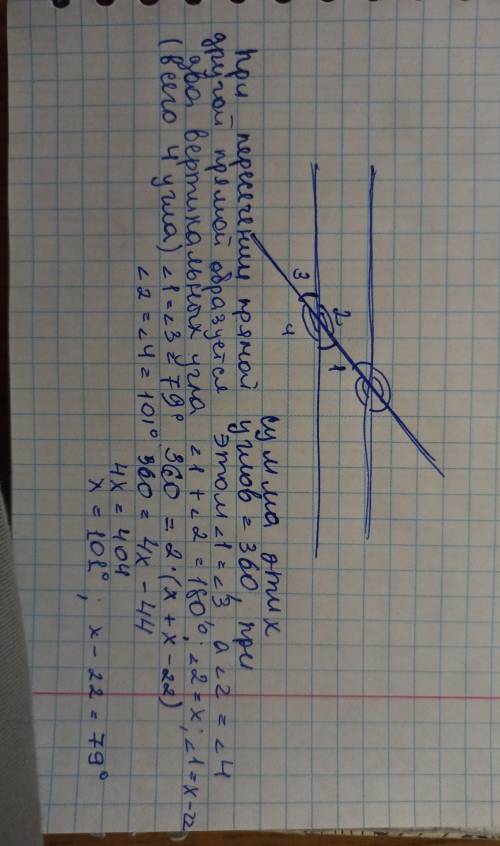 3
2
4
1
При пересечении прямой
другой прямой образуется
два вертикальных угла
(всего 4 угла)
сумма этих
углов = 360, при
этом ∠1 = ∠3 а ∠2 = ∠4
∠1 + ∠2 = 180°; ∠2 = x; ∠1 = x - 22
∠1 = ∠3 = 79°
360 = 2 · (x + x - 22)
∠2 = ∠4 = 101°
360 = 4x - 44
4x = 404
x = 101°; x - 22 = 79°